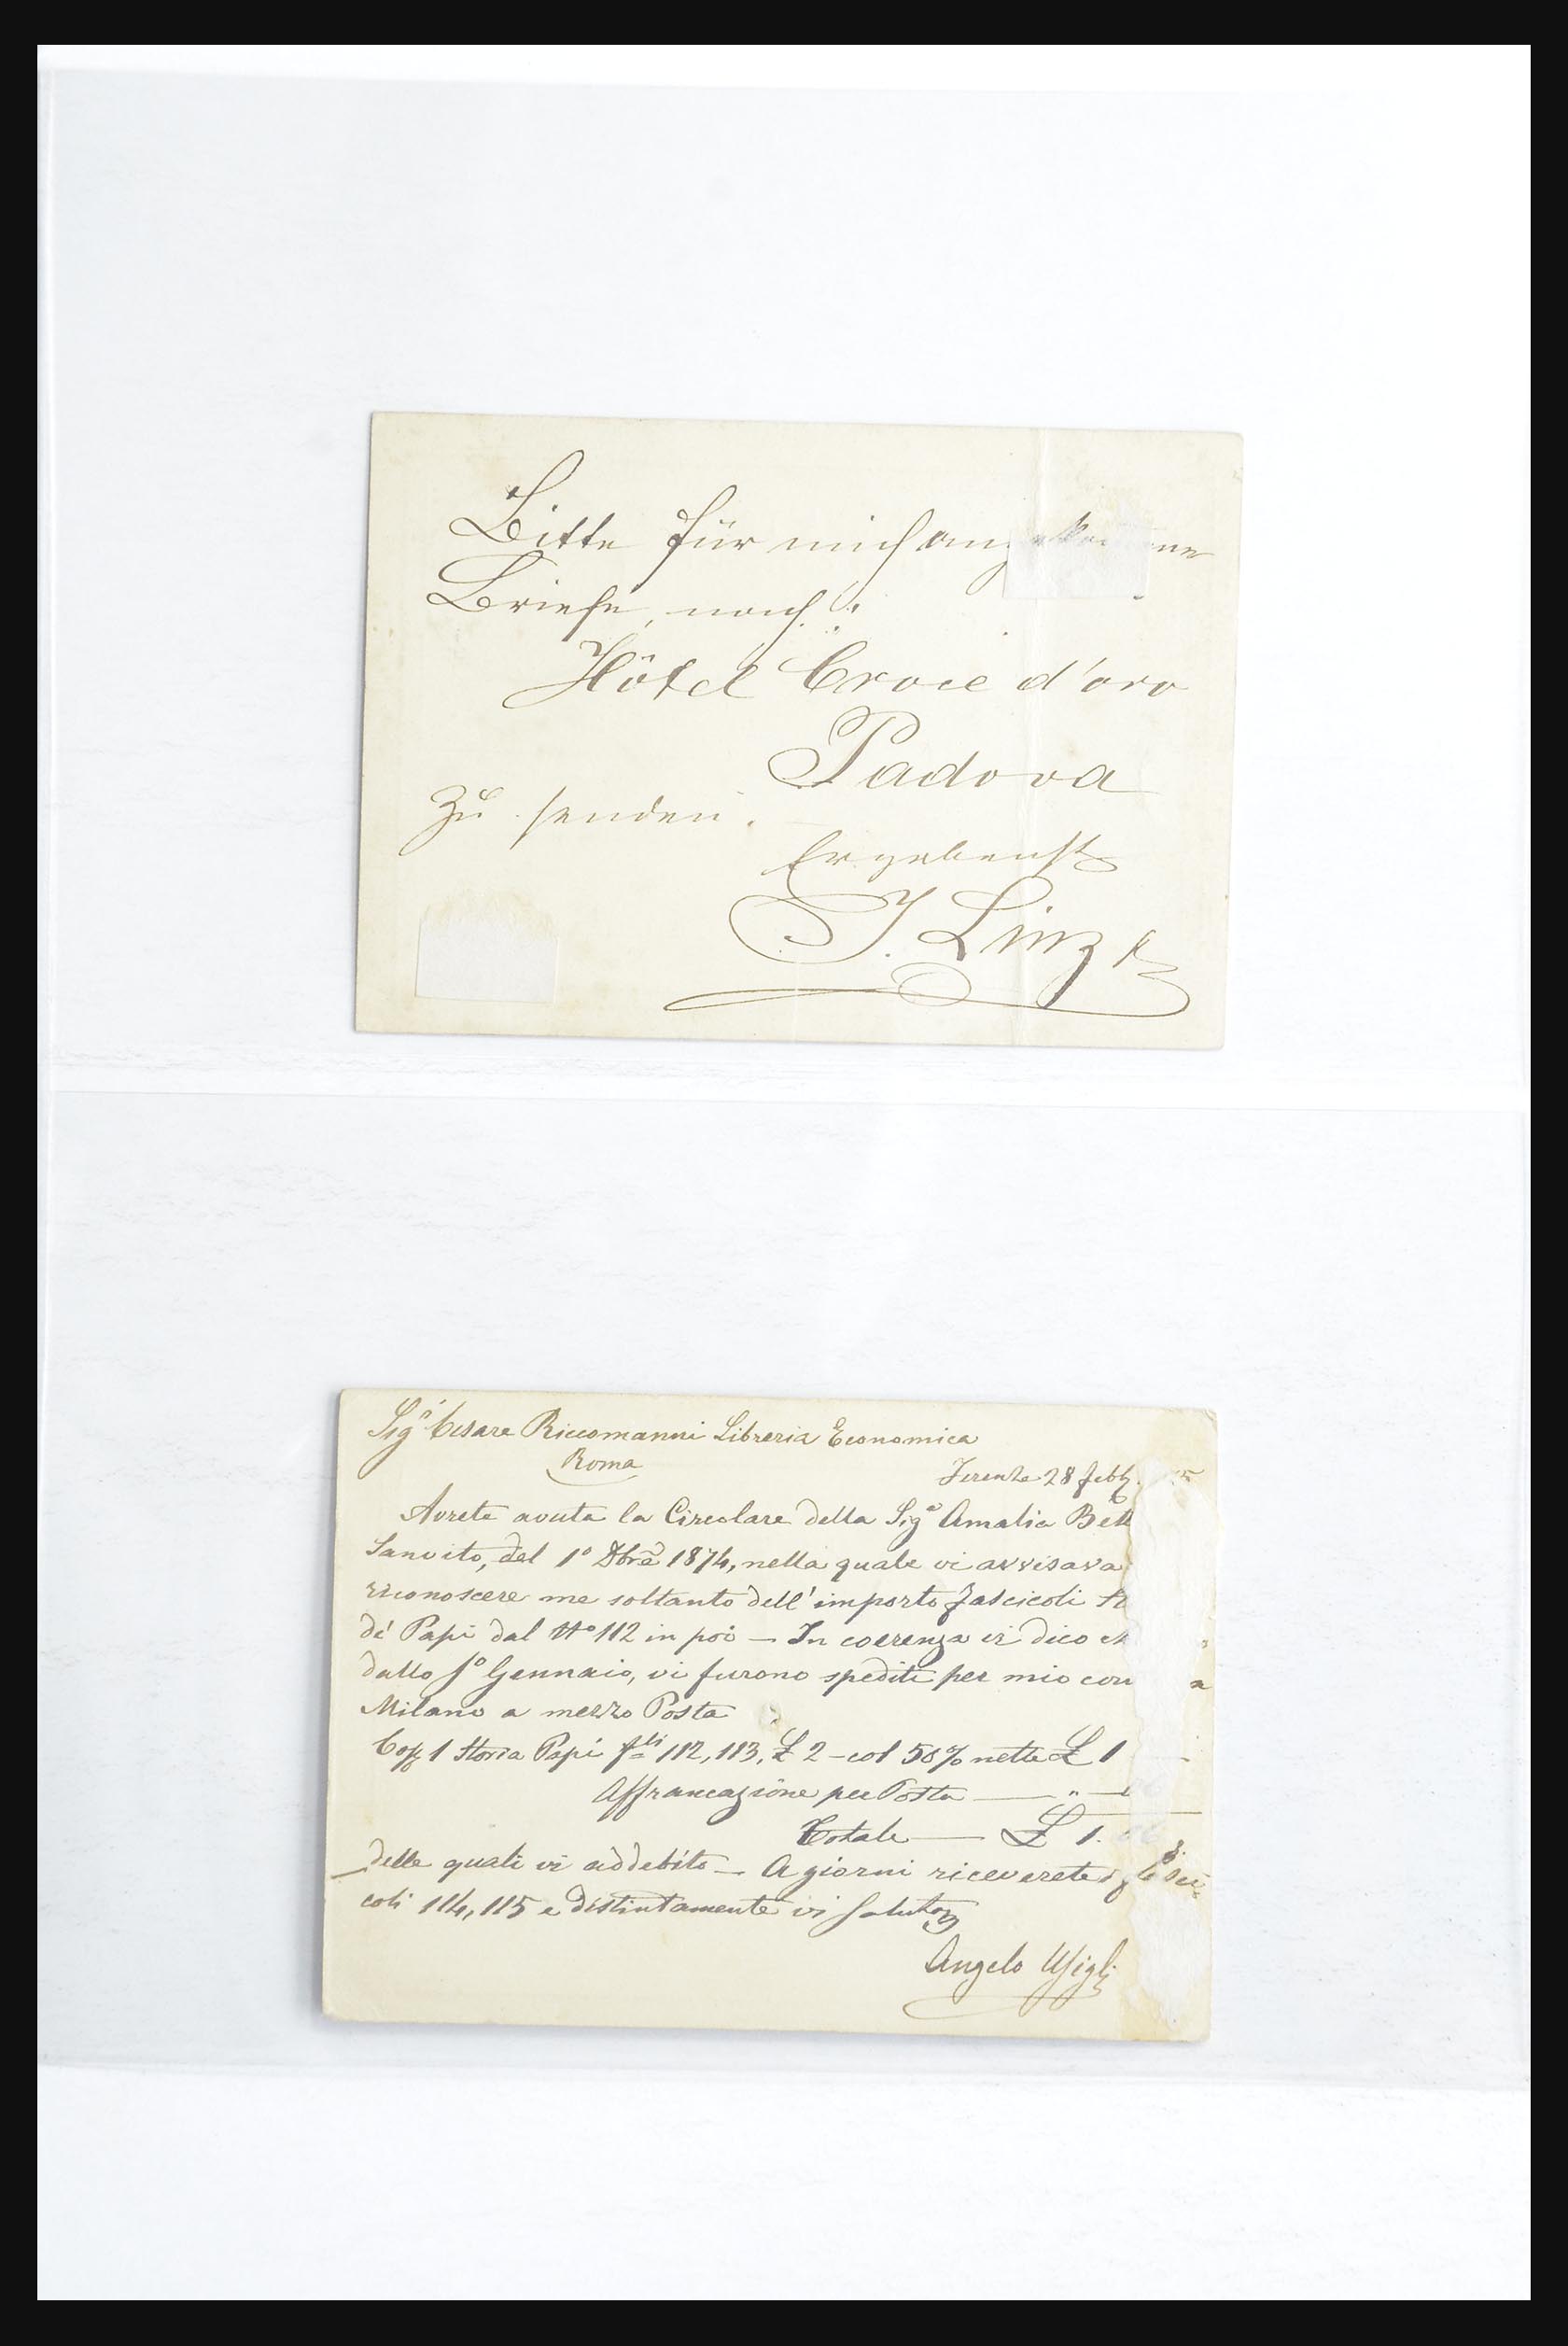 Bitte für mich ang
Briefe, nach:
Hôtel Croce d'oro
Padova
zu senden.
Ergebenst
J. Linz
Sigr Cesare Riccomanni Libreria Economica
Roma
Firenze 28 febb.
Avrete avuta la Circolare della Siga Amalia Bett
Sanvito, del 1o Dbre 1874, nella quale vi avvisava
riconoscere me soltanto dell'importo fascicoli
de' Papi dal No 112 in poi — In coerenza vi dico
dallo Jo Gennaio, vi furono spediti per mio con
Milano a mezzo Posta
Cop 1 Storia Papi fli 112, 113, £ 2 – col 50% nette £ 1
Affrancazione per Posta — " —
Totale — £ 1.
delle quali vi addebito — A giorni riceverete
coli 114, 115 e distintamente vi saluto
Angelo Usigli